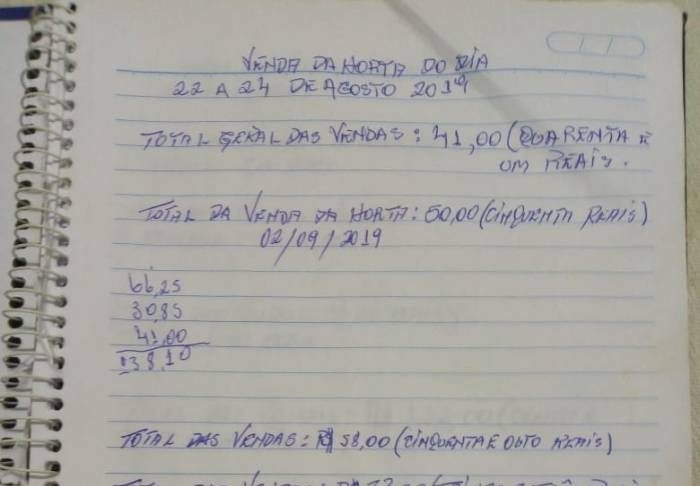 VENDA DA HORTA DO DIA
22 A 24 DE AGOSTO 2019
TOTAL GERAL DAS VENDAS: 41,00 (QUARENTA E
UM REAIS.
TOTAL DA VENDA DA HORTA: 50,00 (CINQUENTA REAIS)
02/09/2019
66,25
30,85
41,00
138,10
TOTAL DAS VENDAS: R$ 58,00 (CINQUENTA E OITO REAIS)